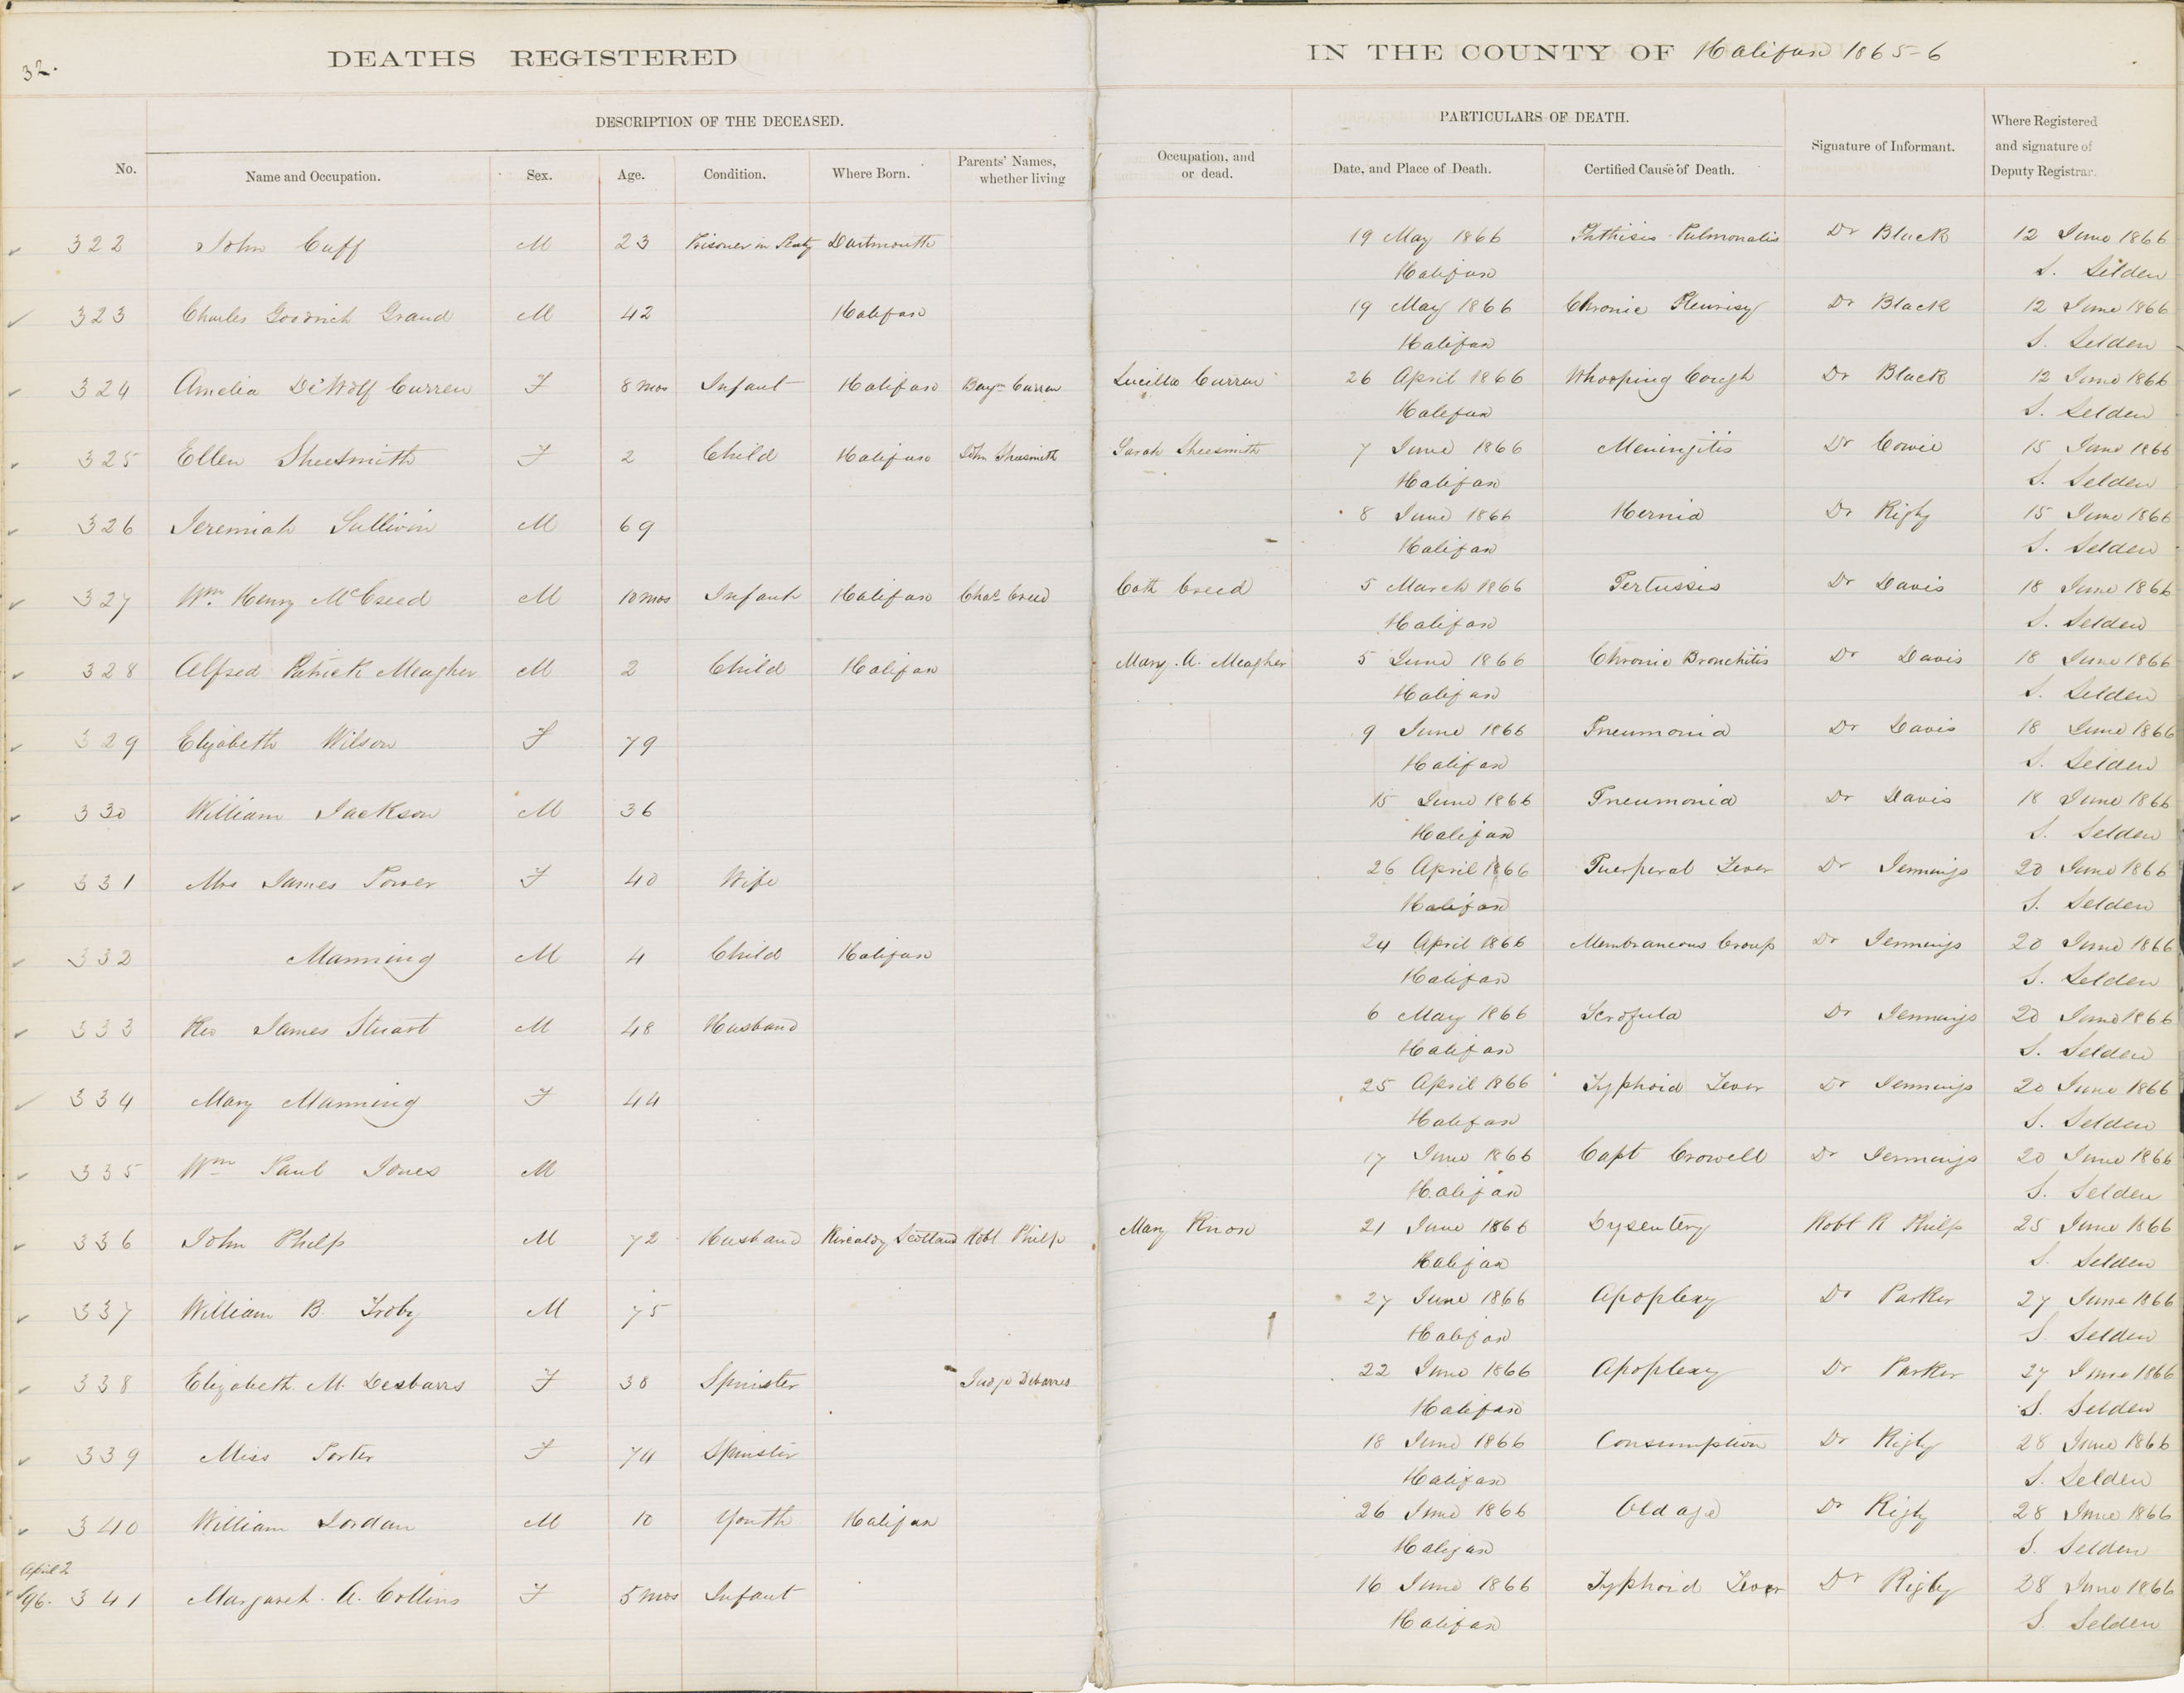 32.
DEATHS REGISTERED
IN THE COUNTY OF Halifax 1865-6
DESCRIPTION OF THE DECEASED.
PARTICULARS OF DEATH.
No.
Name and Occupation.
Sex.
Age.
Condition.
Where Born.
Parents' Names,
whether living
Occupation, and
or dead.
Date, and Place of Death.
Certified Cause of Death.
Signature of Informant.
Where Registered
and signature of
Deputy Registrar.
322 John Cuff M 23 Prisoner in Penty Dartmouth 19 May 1866 Phthisis Pulmonalis Dr Black 12 June 1866
Halifax S. Selden
323 Charles Goodrich Grand M 42 Halifax 19 May 1866 Chronic Pleurisy Dr Black 12 June 1866
Halifax S. Selden
324 Amelia DeWolf Curren F 8 mos Infant Halifax Benjn Curren Lucilla Curren 26 April 1866 Whooping Cough Dr Black 12 June 1866
Halifax S. Selden
325 Ellen Sheesmith F 2 Child Halifax John Sheesmith Sarah Sheesmith 7 June 1866 Meningitis Dr Cowie 15 June 1866
Halifax S. Selden
326 Jeremiah Sullivin M 69 8 June 1866 Hernia Dr Rigby 15 June 1866
Halifax S. Selden
327 Wm. Henry McCreed M 10 mos Infant Halifax Chas Creed Cath Creed 5 March 1866 Pertussis Dr Davis 18 June 1866
Halifax S. Selden
328 Alfred Patrick Meagher M 2 Child Halifax Mary. A. Meagher 5 June 1866 Chronic Bronchitis Dr Davis 18 June 1866
Halifax S. Selden
329 Elizabeth Wilson F 79 9 June 1866 Pneumonia Dr Davis 18 June 1866
Halifax S. Selden
330 William Jackson M 36 15 June 1866 Pneumonia Dr Davis 18 June 1866
Halifax S. Selden
331 Mrs James Power F 40 Wife 26 April 1866 Puerperal Fever Dr Jennings 20 June 1866
Halifax S. Selden
332 Manning M 4 Child Halifax 24 April 1866 Membraneous Croup Dr Jennings 20 June 1866
Halifax S. Selden
333 Rev James Stuart M 48 Husband 6 May 1866 Scrofula Dr Jennings 20 June 1866
Halifax S. Selden
334 Mary Manning F 44 25 April 1866 Typhoid Fever Dr Jennings 20 June 1866
Halifax S. Selden
335 Wm Paul Jones M 17 June 1866 Capt Crowell Dr Jennings 20 June 1866
Halifax S. Selden
336 John Philp M 72 Husband Kircaldy Scotland Robt Philp Mary Knox 21 June 1866 Dysentery Robt R Philp 25 June 1866
Halifax S. Selden
337 William B. Troby M 75 27 June 1866 Apoplexy Dr Parker 27 June 1866
Halifax S. Selden
338 Elizabeth. M. Desbarrs F 38 Spinster Judge Debarres 22 June 1866 Apoplexy Dr Parker 27 June 1866
Halifax S. Selden
339 Miss Porter F 74 Spinster 18 June 1866 Consumption Dr Rigby 28 June 1866
Halifax S. Selden
340 William Jordan M 10 Youth Halifax 26 June 1866 Old age Dr Rigby 28 June 1866
Halifax S. Selden
April 2
/96. 341 Margaret. A. Collins F 5 mos Infant 16 June 1866 Typhoid Fever Dr Rigby 28 June 1866
Halifax S. Selden